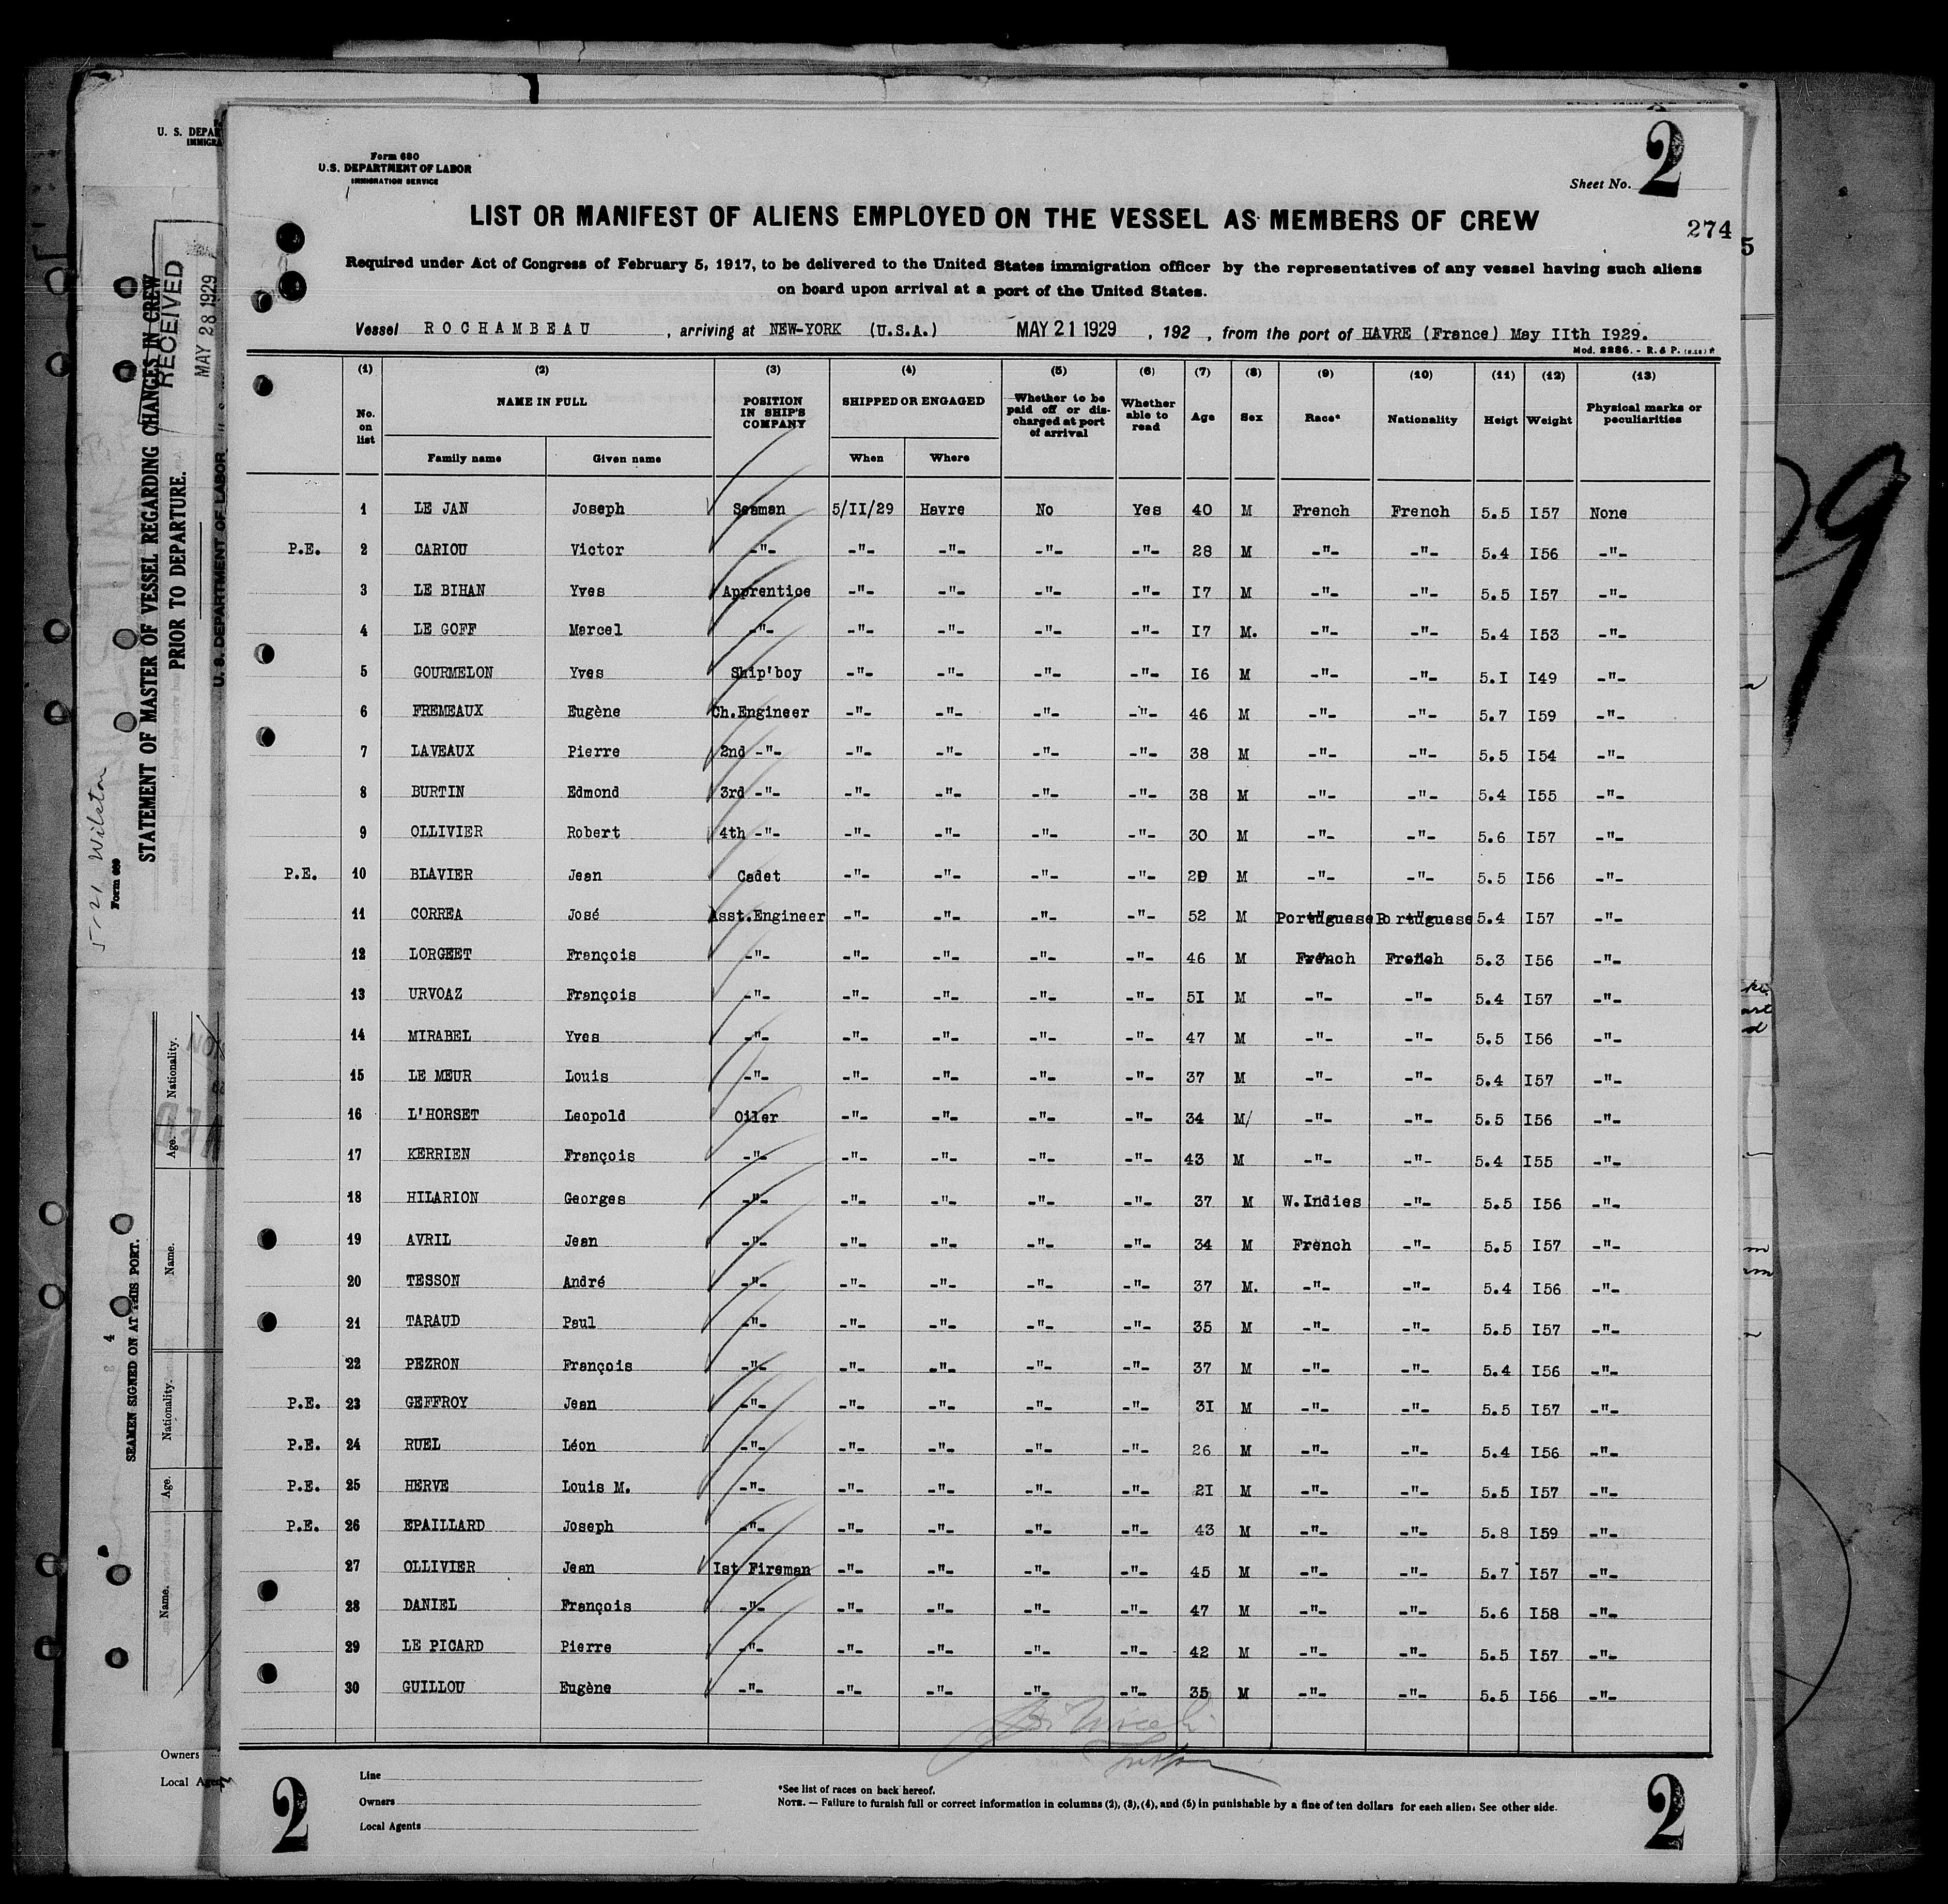 U. S. DEPAR
IMMIGRA
RECEIVED
MAY 28 1929
STATEMENT OF MASTER OF VESSEL REGARDING CHANGES IN CREW
PRIOR TO DEPARTURE.
U. S. DEPARTMENT OF LABOR
Form 689
SEAMEN SIGNED ON AT THIS PORT.
Nationality.
Age.
Name.
Nationality.
Age.
Name.
Owners
Local Agen
Form 680
U.S. DEPARTMENT OF LABOR
IMMIGRATION SERVICE
Sheet No. 2
LIST OR MANIFEST OF ALIENS EMPLOYED ON THE VESSEL AS MEMBERS OF CREW
274
5
Required under Act of Congress of February 5, 1917, to be delivered to the United States immigration officer by the representatives of any vessel having such aliens
on board upon arrival at a port of the United States.
Vessel ROCHAMBEAU , arriving at NEW-YORK (U.S.A.) MAY 21 1929 , 192 , from the port of HAVRE (France) May IIth I929.
Mod. 2286. - R. & P.
(1) (2) (3) (4) (5) (6) (7) (8) (9) (10) (11) (12) (13)
No. on list NAME IN FULL POSITION IN SHIP'S COMPANY SHIPPED OR ENGAGED Whether to be paid off or discharged at port of arrival Whether able to read Age Sex Race* Nationality Heigt Weight Physical marks or peculiarities
Family name Given name When Where
1 LE JAN Joseph Seaman 5/II/29 Havre No Yes 40 M French French 5.5 I57 None
P.E. 2 CARIOU Victor -"- -"- -"- -"- -"- 28 M -"- -"- 5.4 I56 -"-
3 LE BIHAN Yves Apprentice -"- -"- -"- -"- I7 M -"- -"- 5.5 I57 -"-
4 LE GOFF Marcel -"- -"- -"- -"- -"- I7 M. -"- -"- 5.4 I53 -"-
5 GOURMELON Yves Ship'boy -"- -"- -"- -"- I6 M -"- -"- 5.I I49 -"-
6 FREMEAUX Eugène Ch.Engineer -"- -"- -"- -"- 46 M -"- -"- 5.7 I59 -"-
7 LAVEAUX Pierre 2nd -"- -"- -"- -"- -"- 38 M -"- -"- 5.5 I54 -"-
8 BURTIN Edmond 3rd -"- -"- -"- -"- -"- 38 M -"- -"- 5.4 I55 -"-
9 OLLIVIER Robert 4th -"- -"- -"- -"- -"- 30 M -"- -"- 5.6 I57 -"-
P.E. 10 BLAVIER Jean Cadet -"- -"- -"- -"- M -"- -"- 5.5 I56 -"-
11 CORREA José Asst.Engineer -"- -"- -"- -"- 52 M Portuguese Portuguese 5.4 I57 -"-
12 LORGEET François -"- -"- -"- -"- -"- 46 M French French 5.3 I56 -"-
13 URVOAZ François -"- -"- -"- -"- -"- 5I M -"- -"- 5.4 I57 -"-
14 MIRABEL Yves -"- -"- -"- -"- -"- 47 M -"- -"- 5.5 I56 -"-
15 LE MEUR Louis -"- -"- -"- -"- -"- 37 M -"- -"- 5.4 I57 -"-
16 L'HORSET Leopold Oiler -"- -"- -"- -"- 34 M/ -"- -"- 5.5 I56 -"-
17 KERRIEN François -"- -"- -"- -"- -"- 43 M -"- -"- 5.4 I55 -"-
18 HILARION Georges -"- -"- -"- -"- -"- 37 M W.Indies -"- 5.5 I56 -"-
19 AVRIL Jean -"- -"- -"- -"- -"- 34 M French -"- 5.5 I57 -"-
20 TESSON André -"- -"- -"- -"- -"- 37 M. -"- -"- 5.4 I56 -"-
21 TARAUD Paul -"- -"- -"- -"- -"- 35 M -"- -"- 5.5 I57 -"-
22 PEZRON François -"- -"- -"- -"- -"- 37 M -"- -"- 5.4 I56 -"-
P.E. 23 GEFFROY Jean -"- -"- -"- -"- -"- 3I M -"- -"- 5.5 I57 -"-
P.E. 24 RUEL Léon -"- -"- -"- -"- -"- 26 M -"- -"- 5.4 I56 -"-
P.E. 25 HERVE Louis M. -"- -"- -"- -"- -"- 2I M -"- -"- 5.5 I57 -"-
P.E. 26 EPAILLARD Joseph -"- -"- -"- -"- -"- 43 M -"- -"- 5.8 I59 -"-
27 OLLIVIER Jean Ist Fireman -"- -"- -"- -"- 45 M -"- -"- 5.7 I57 -"-
28 DANIEL François -"- -"- -"- -"- -"- 47 M -"- -"- 5.6 I58 -"-
29 LE PICARD Pierre -"- -"- -"- -"- -"- 42 M -"- -"- 5.5 I57 -"-
30 GUILLOU Eugène -"- -"- -"- -"- -"- 35 M -"- -"- 5.5 I56 -"-
Line
Owners
Local Agents
*See list of races on back hereof.
NOTE. — Failure to furnish full or correct information in columns (2), (3), (4), and (5) in punishable by a fine of ten dollars for each alien. See other side.
2
2